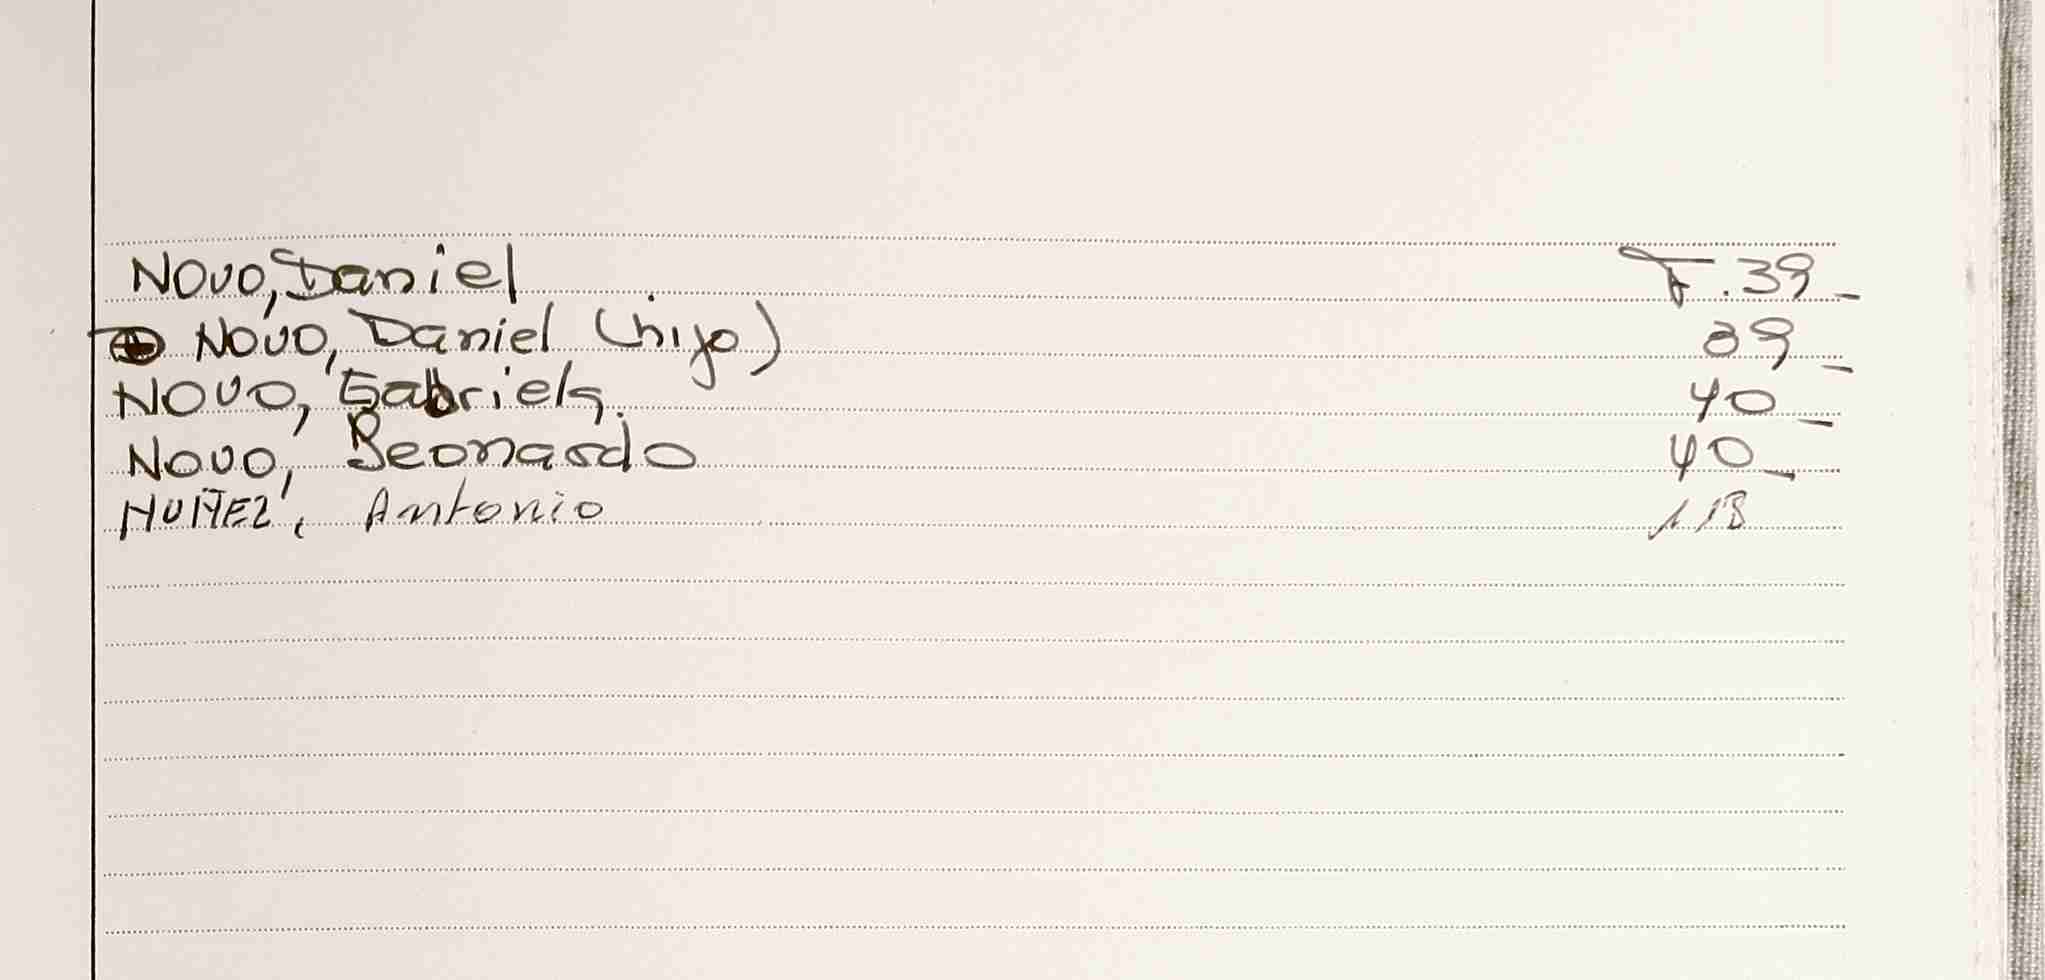 NOVO, Daniel F. 39_
NOVO, Daniel (hijo) 39_
NOVO, Gabriela. 40_
NOVO, Leonardo 40_
NUÑEZ, Antonio 113